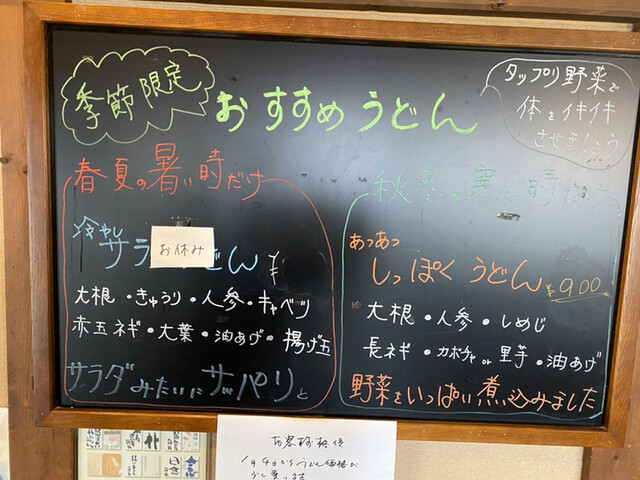 季節限定
おすすめうどん
タップリ野菜で
体をイキイキ
させましょう
春夏の暑い時だけ
冷やし
サラ
お休み
どん ¥
大根・きゅうり・人参・キャベツ
赤玉ネギ・大葉・油あげ・揚げ玉
サラダみたいにサッパリと
秋冬の寒い時だけ
あつあつ
しっぽくうどん ¥900
大根・人参・しめじ
長ネギ・カボチャor里芋・油あげ
野菜をいっぱい煮込みました
お客様各位
1月4日からうどん価格が
少し変います